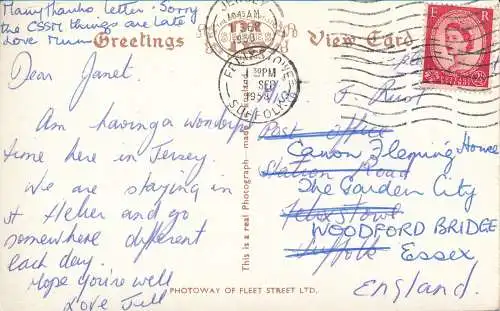 Many thanks letter. Sorry
the CSSM things are late
Love Mum
Greetings
View Card
JERSEY
1045AM
SEP
Dear Janet.
Am having a wonderful
time here in Jersey.
We are staying in
St Helier and go
somewhere different
each day.
Hope you're well
Love Jill
This is a real Photograph made in England
FELIXSTOWE
PM
SEP
SUFFOLK
E R
J. Rust
Post Office
Canon Fleming House
Station Road
The Garden City
Felixstowe
WOODFORD BRIDGE
Suffolk
Essex
England.
PHOTOWAY OF FLEET STREET LTD.